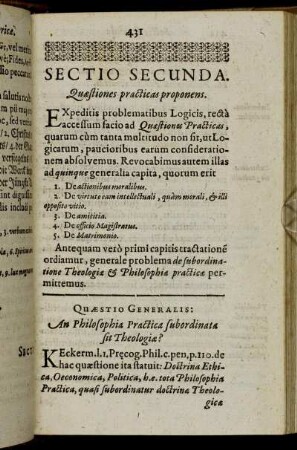 trice.
431
SECTIO SECUNDA.
Quæstiones practicas proponens.
EXpeditis problematibus Logicis, rectà
accessum facio ad Quæstiones Practicas,
quarum cùm tanta multitudo non sit, ut Lo-
gicarum, paucioribus earum consideratio-
nem absolvemus. Revocabimus autem illas
ad quinque generalia capita, quorum erit
1. De actionibus moralibus.
2. De virtute cum intellectuali, quàm morali, & illi
opposito vitio.
3. De amicitia.
4. De officio Magistratus.
5. De Matrimonio.
Antequam verò primi capitis tractationẽ
ordiamur, generale problema de subordina-
tione Theologiæ & Philosophiæ practicæ per-
mittemus.
QUÆSTIO GENERALIS:
An Philosophia Practica subordinata
sit Theologiæ?
KEckerm. l. 1, Præcog. Phil. c. pen, p. 110. de
hac quæstione ita statuit: Doctrina Ethi-
ca, Oeconomica, Politica, h.e. tota Philosophia
Practica, quasi subordinatur doctrinæ Theolo-
gicæ